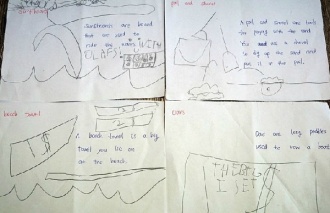 surfboard
Surfboards are board
that are used to
ride the waves
pail and shovel
A pail and shovel are tools
for playing with the sand
You use a shovel
to dig up the sand and
put it in the pail.
beach towel
A beach towel is a big
towel you lie on
on the beach.
oars
Oars are long paddles
used to row a boat